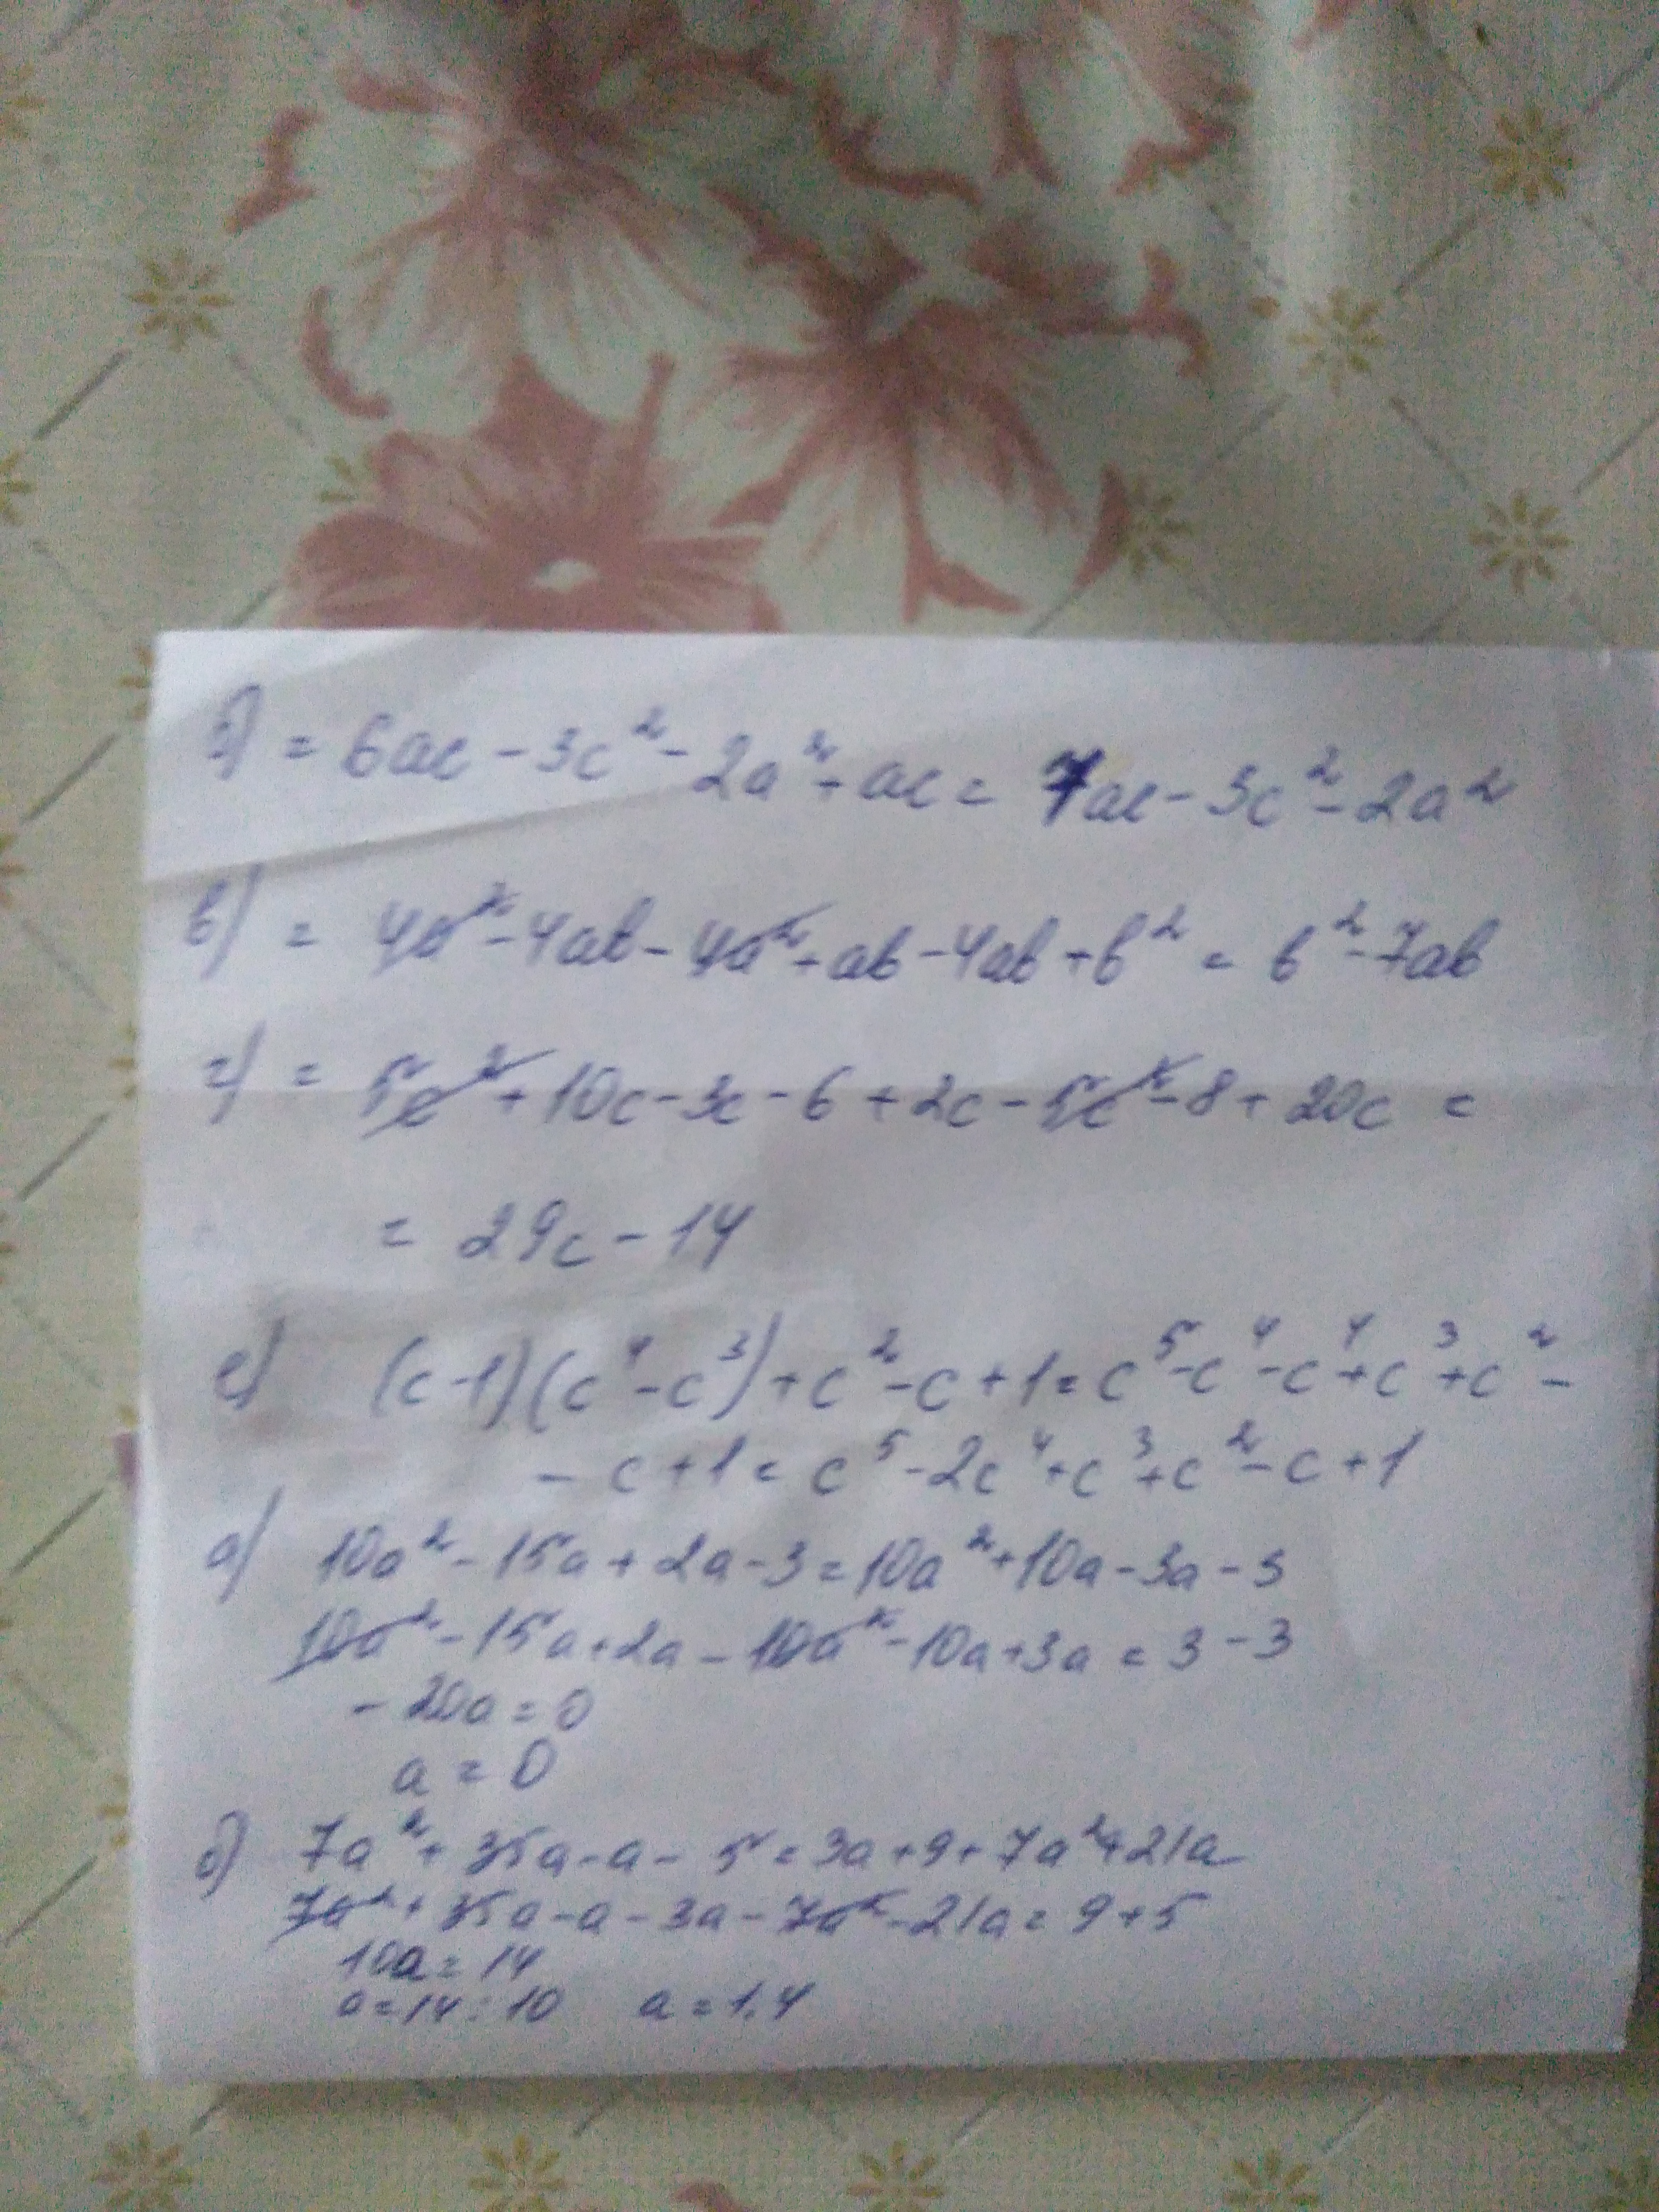 б) = 6ac - 3c² - 2a² + ac = 7ac - 3c² - 2a²
в) = 4a² - 4ab - 4a² + ab - 4ab + b² = b² - 7ab
г) = 5c² + 10c - 3c - 6 + 2c - 5c² - 8 + 20c =
= 29c - 14
е) (c - 1)(c⁴ - c³) + c² - c + 1 = c⁵ - c⁴ - c⁴ + c³ + c² -
- c + 1 = c⁵ - 2c⁴ + c³ + c² - c + 1
а) 10a² - 15a + 2a - 3 = 10a² + 10a - 3a - 3
10a² - 15a + 2a - 10a² - 10a + 3a = 3 - 3
- 20a = 0
a = 0
б) 7a² + 35a - a - 5 = 3a + 9 + 7a² + 21a
7a² + 35a - a - 3a - 7a² - 21a = 9 + 5
10a = 14
a = 14 : 10 a = 1,4